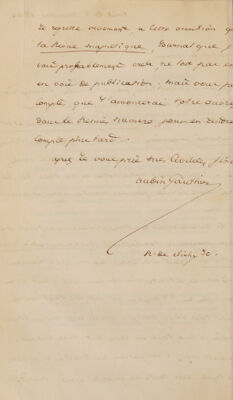 Je regrette vivement à cette occasion que
la Revue magnétique, Journal que je
vais probablement ne soit pas en
en voie de publication, mais vous pouvez
compter que j'annoncerai votre ouvrage
dans le premier numéro pour en rendre
compte plus tard.
agréez je vous prie mes
aubin Gauthier
R. de Clichy 30.